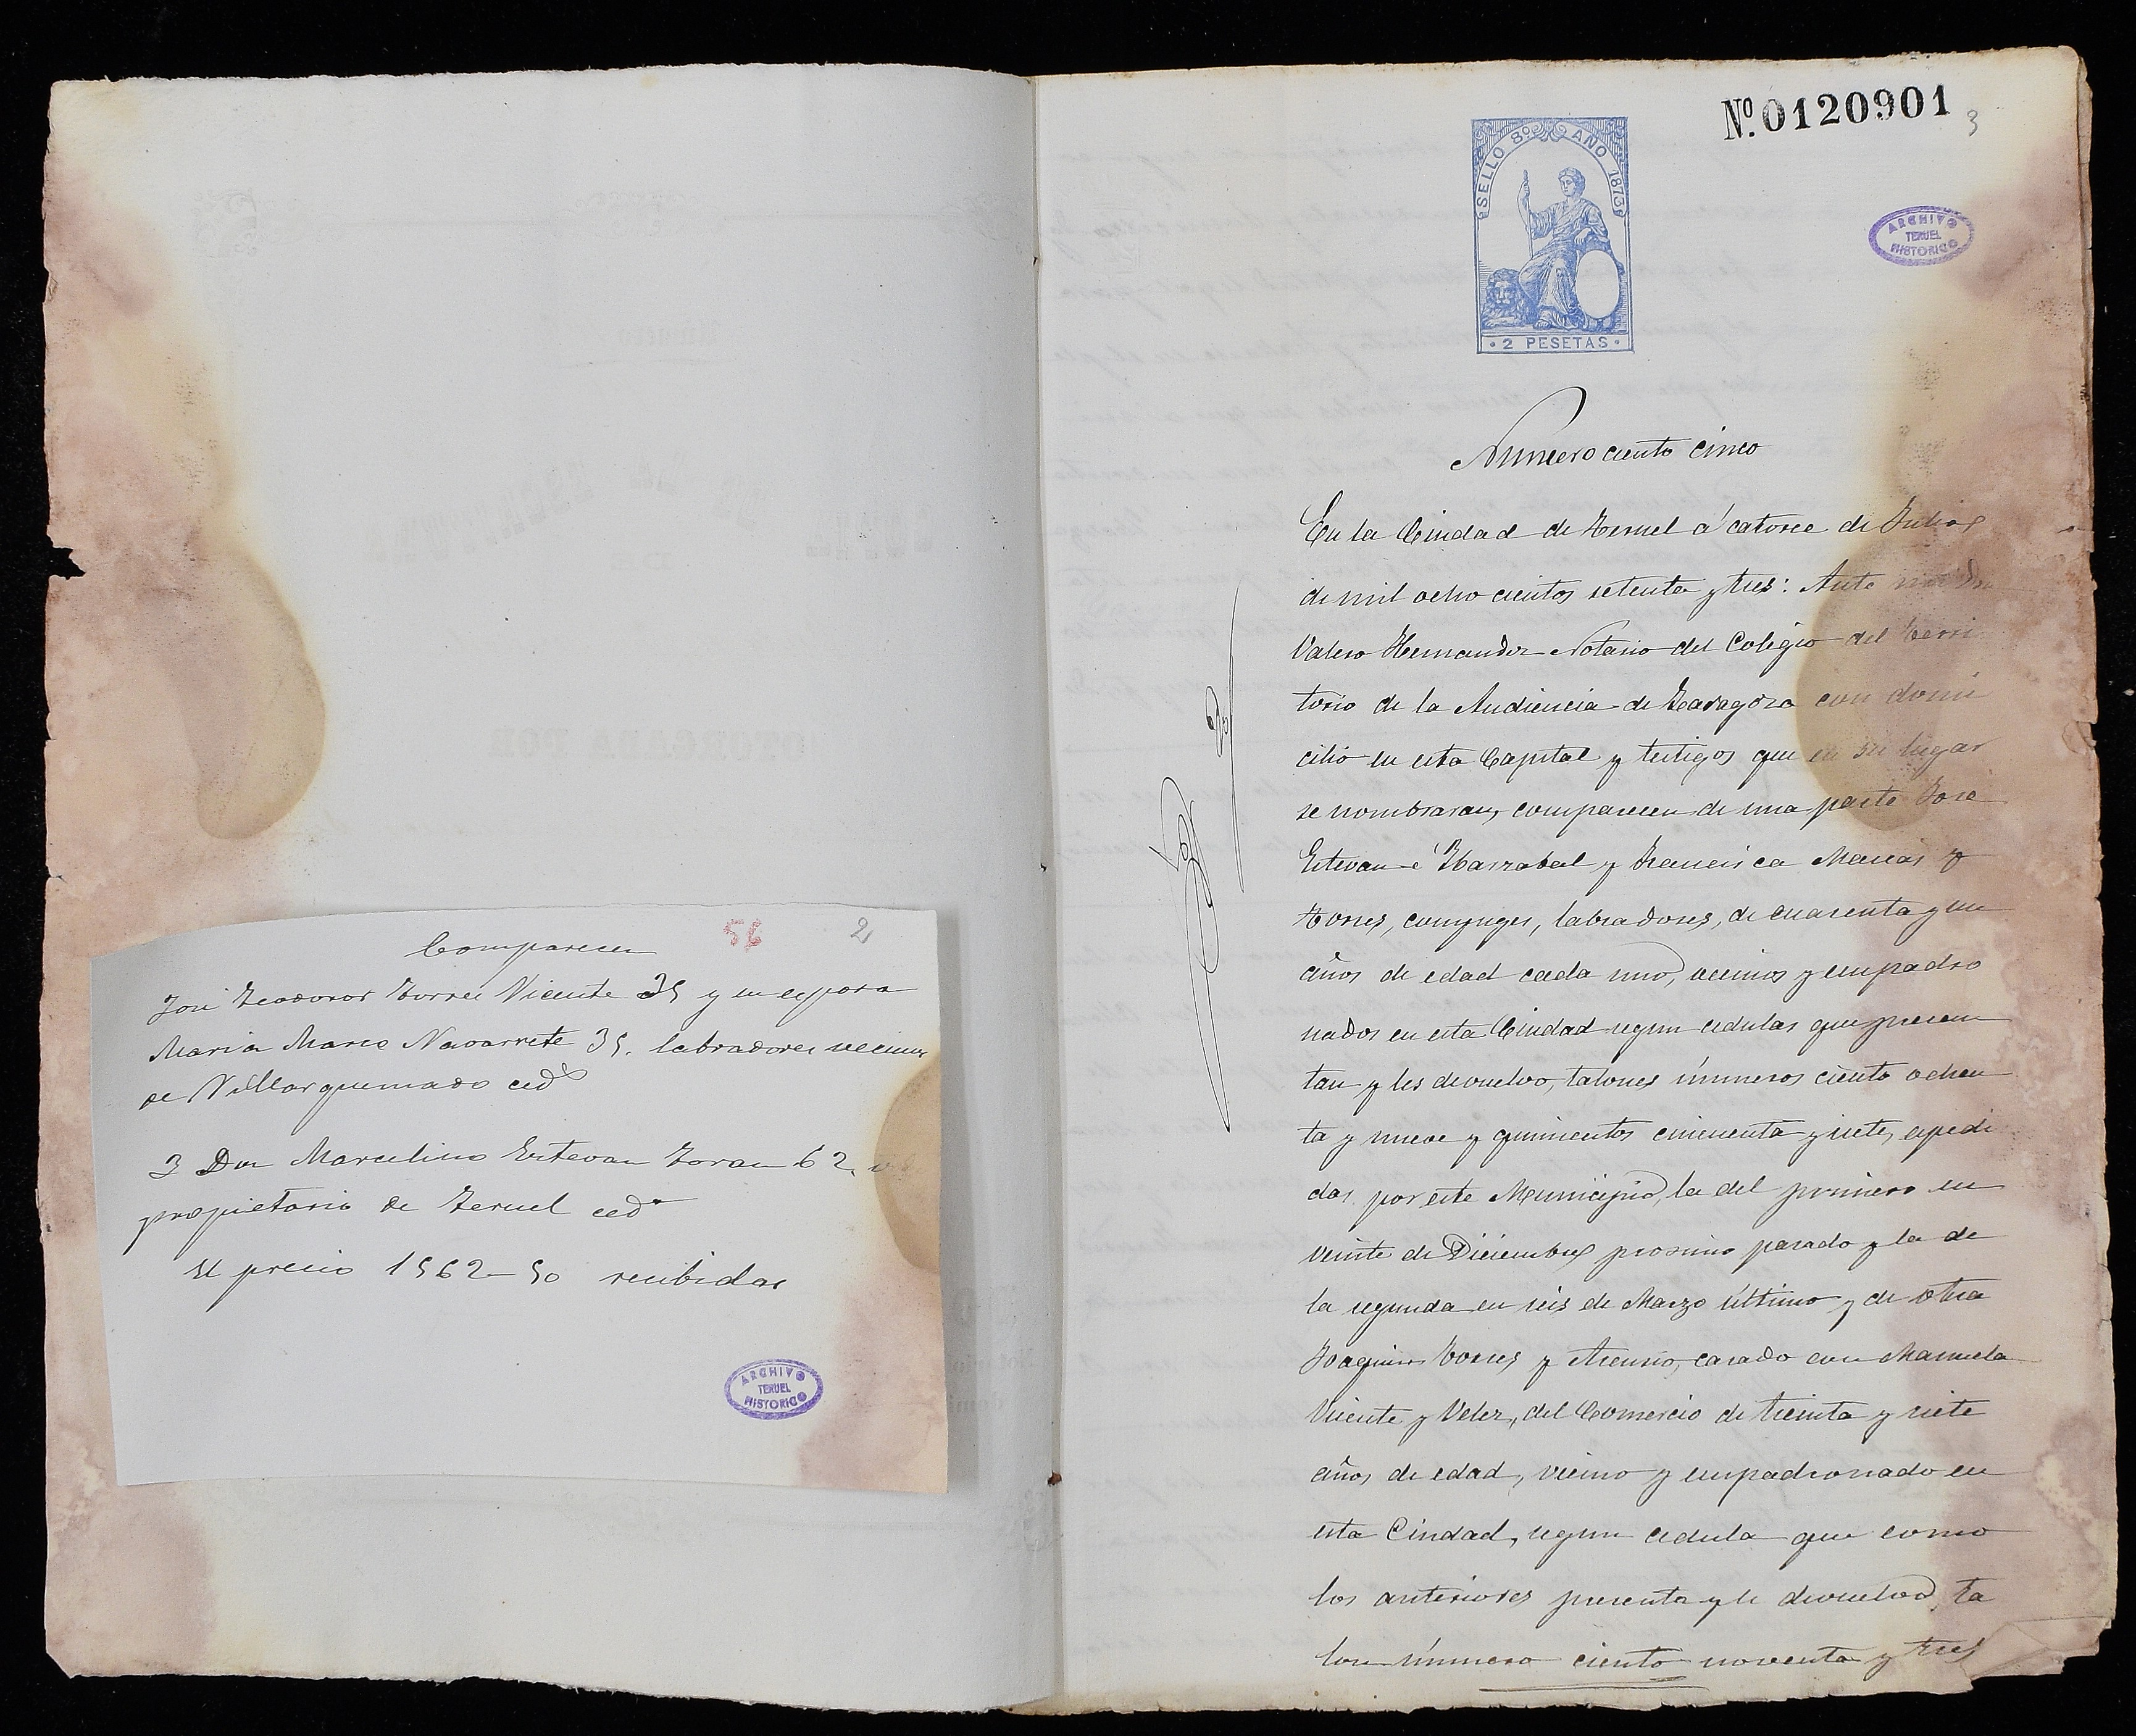 Comparecen
56
2
José Teodoro Torres Vicente 35 y su esposa
Maria Marco Navarrete 35. labradores vecinos
de Villarquemado ced.ª
3 Don Marcelino Estevan Toran 62,
propietario de Teruel ced.ª
El precio 1562-50 recibidas
ARCHIVO
TERUEL
HISTORICO
Nº. 0120901
3
SELLO 8º AÑO 1873
2 PESETAS
ARCHIVO
TERUEL
HISTORICO
Numero ciento cinco
En la Ciudad de Teruel á catorce de Julio
de mil ocho cientos setenta y tres: Ante mi Dn
Valero Hernandez Notario del Colegio del Terri
torio de la Audiencia de Zaragoza con domi
cilio en esta Capital y testigos que en su lugar
se nombraran, comparecen de una parte José
Estevan é Ibarzabal y Francisca Macias y
Torres, conyuges, labradores, de cuarenta y un
años de edad cada uno, vecinos y empadro
nados en esta Ciudad segun cedulas que presen
tan y les devuelvo, talones números ciento ochen
ta y nueve y quinientos cincuenta y siete, expedi
das por este Municipio, la del primero en
veinte de Diciembre procsimo pasado y la de
la segunda en seis de Marzo último y de otra
Joaquin Torres y Asensio, casado con Manuela
Vicente y Velez, del Comercio de treinta y siete
años de edad, vecino y empadronado en
esta Ciudad, segun cedula que como
los anteriores presenta y le devuelvo, ta
lon número ciento noventa y tres